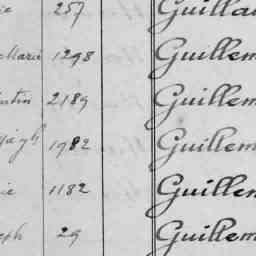 ie 257 Guilla
Marie 1298 Guillem
entin 2189 Guillem
1982 Guillem
ie 1182 Guillem
eph 29 Guillem